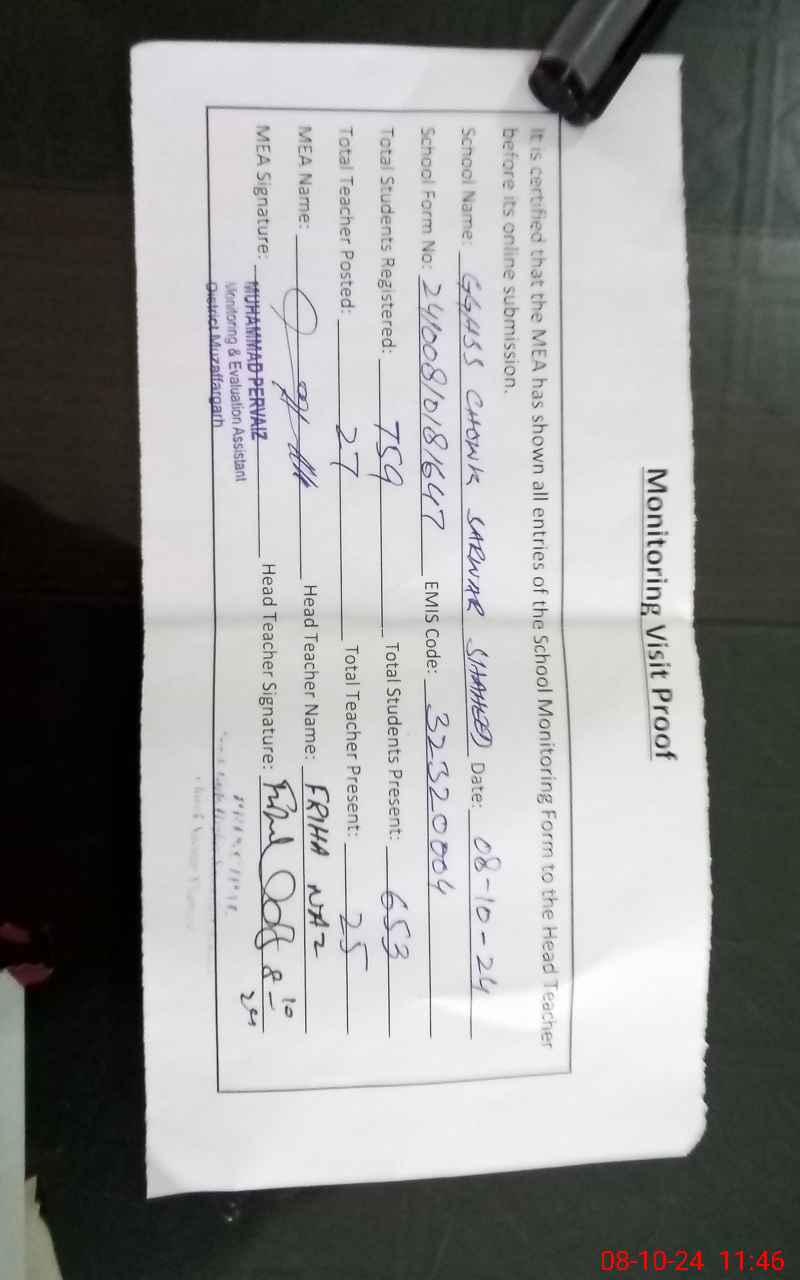 Monitoring Visit Proof
It is certified that the MEA has shown all entries of the School Monitoring Form to the Head Teacher
before its online submission.
School Name: GGHSS CHOWK SARWAR SHAHEED Date: 08-10-24
School Form No: 24100810181647 EMIS Code: 32320004
Total Students Registered: 759 Total Students Present: 653
Total Teacher Posted: 27 Total Teacher Present: 25
MEA Name: Head Teacher Name: FRIHA NAZ
MEA Signature: Head Teacher Signature: 8-10
24
MUHAMMAD PERVAIZ
Monitoring & Evaluation Assistant
District Muzaffargarh
PRINCIPAL
08-10-24 11:46